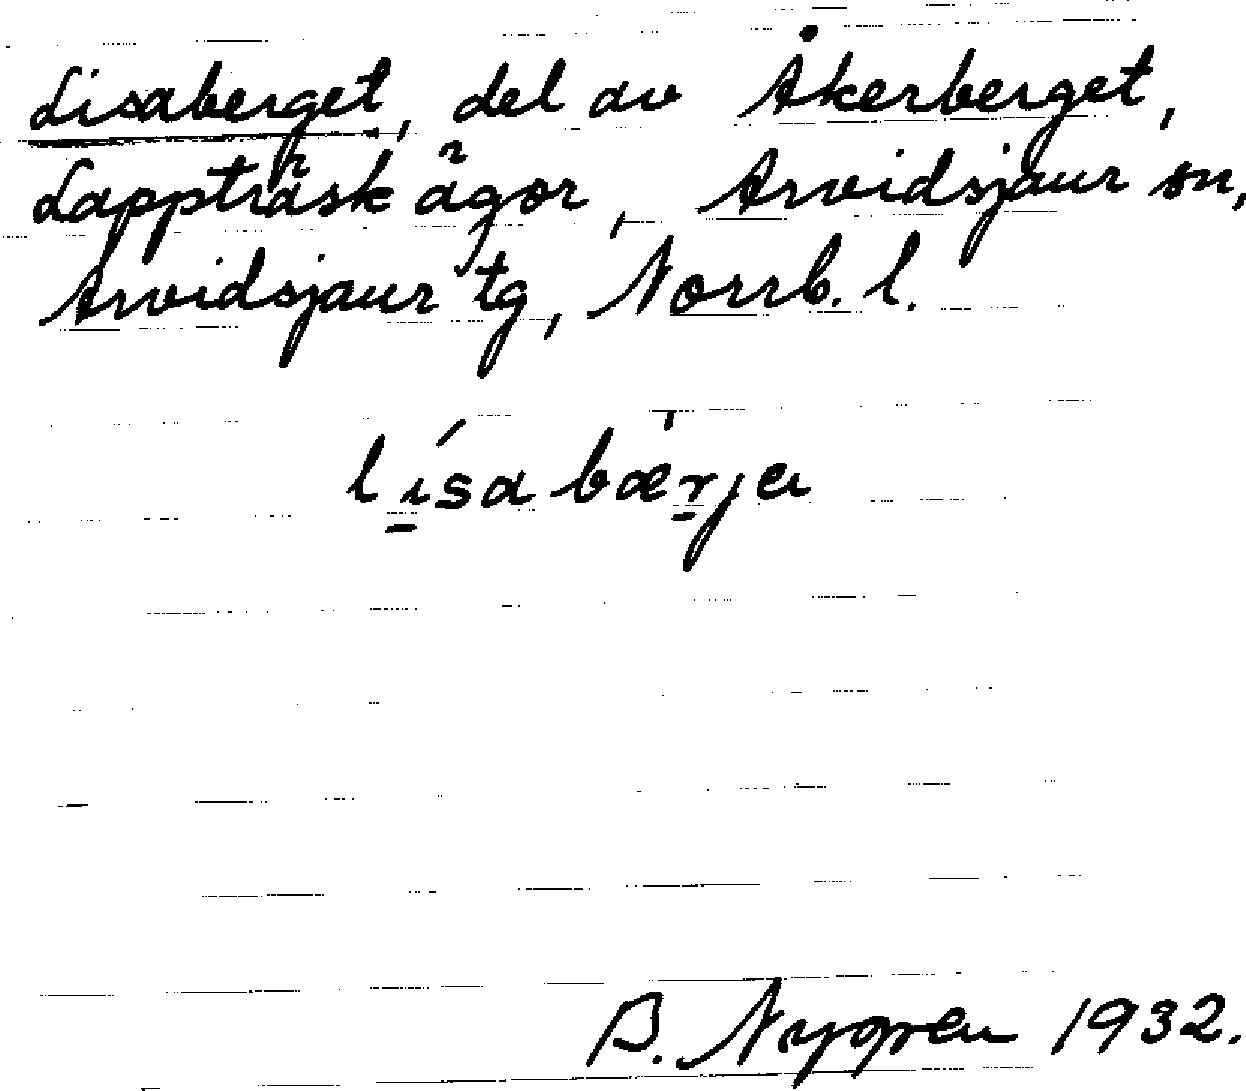 Lisaberget, del av Åkerberget,
Lappträsk ägor, Arvidsjaur sn,
Arvidsjaur tg, Norrb. l.
li̠´sabær̠'jɐ
B. Nygren 1932.